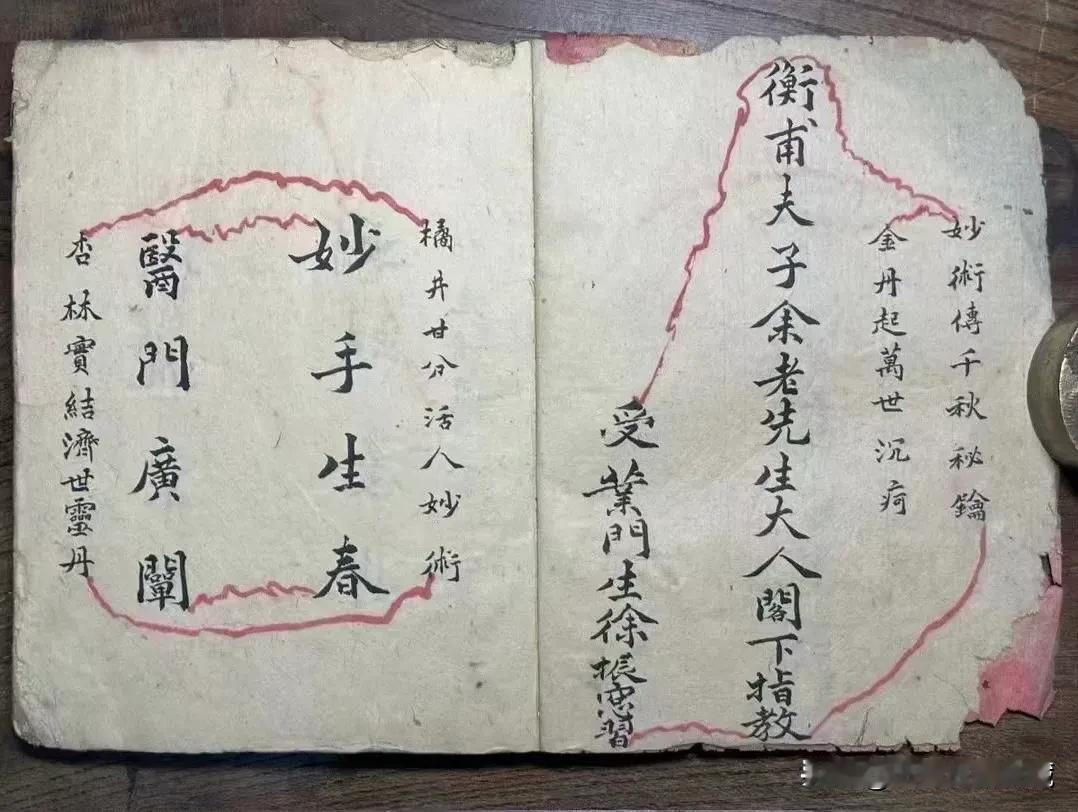 妙術傳千秋秘鑰
金丹起萬世沉疴
衡甫夫子余老先生大人閣下指教
受業門生徐振習
橘井甘分活人妙術
妙手生春
醫門廣闡
杏林實結濟世靈丹